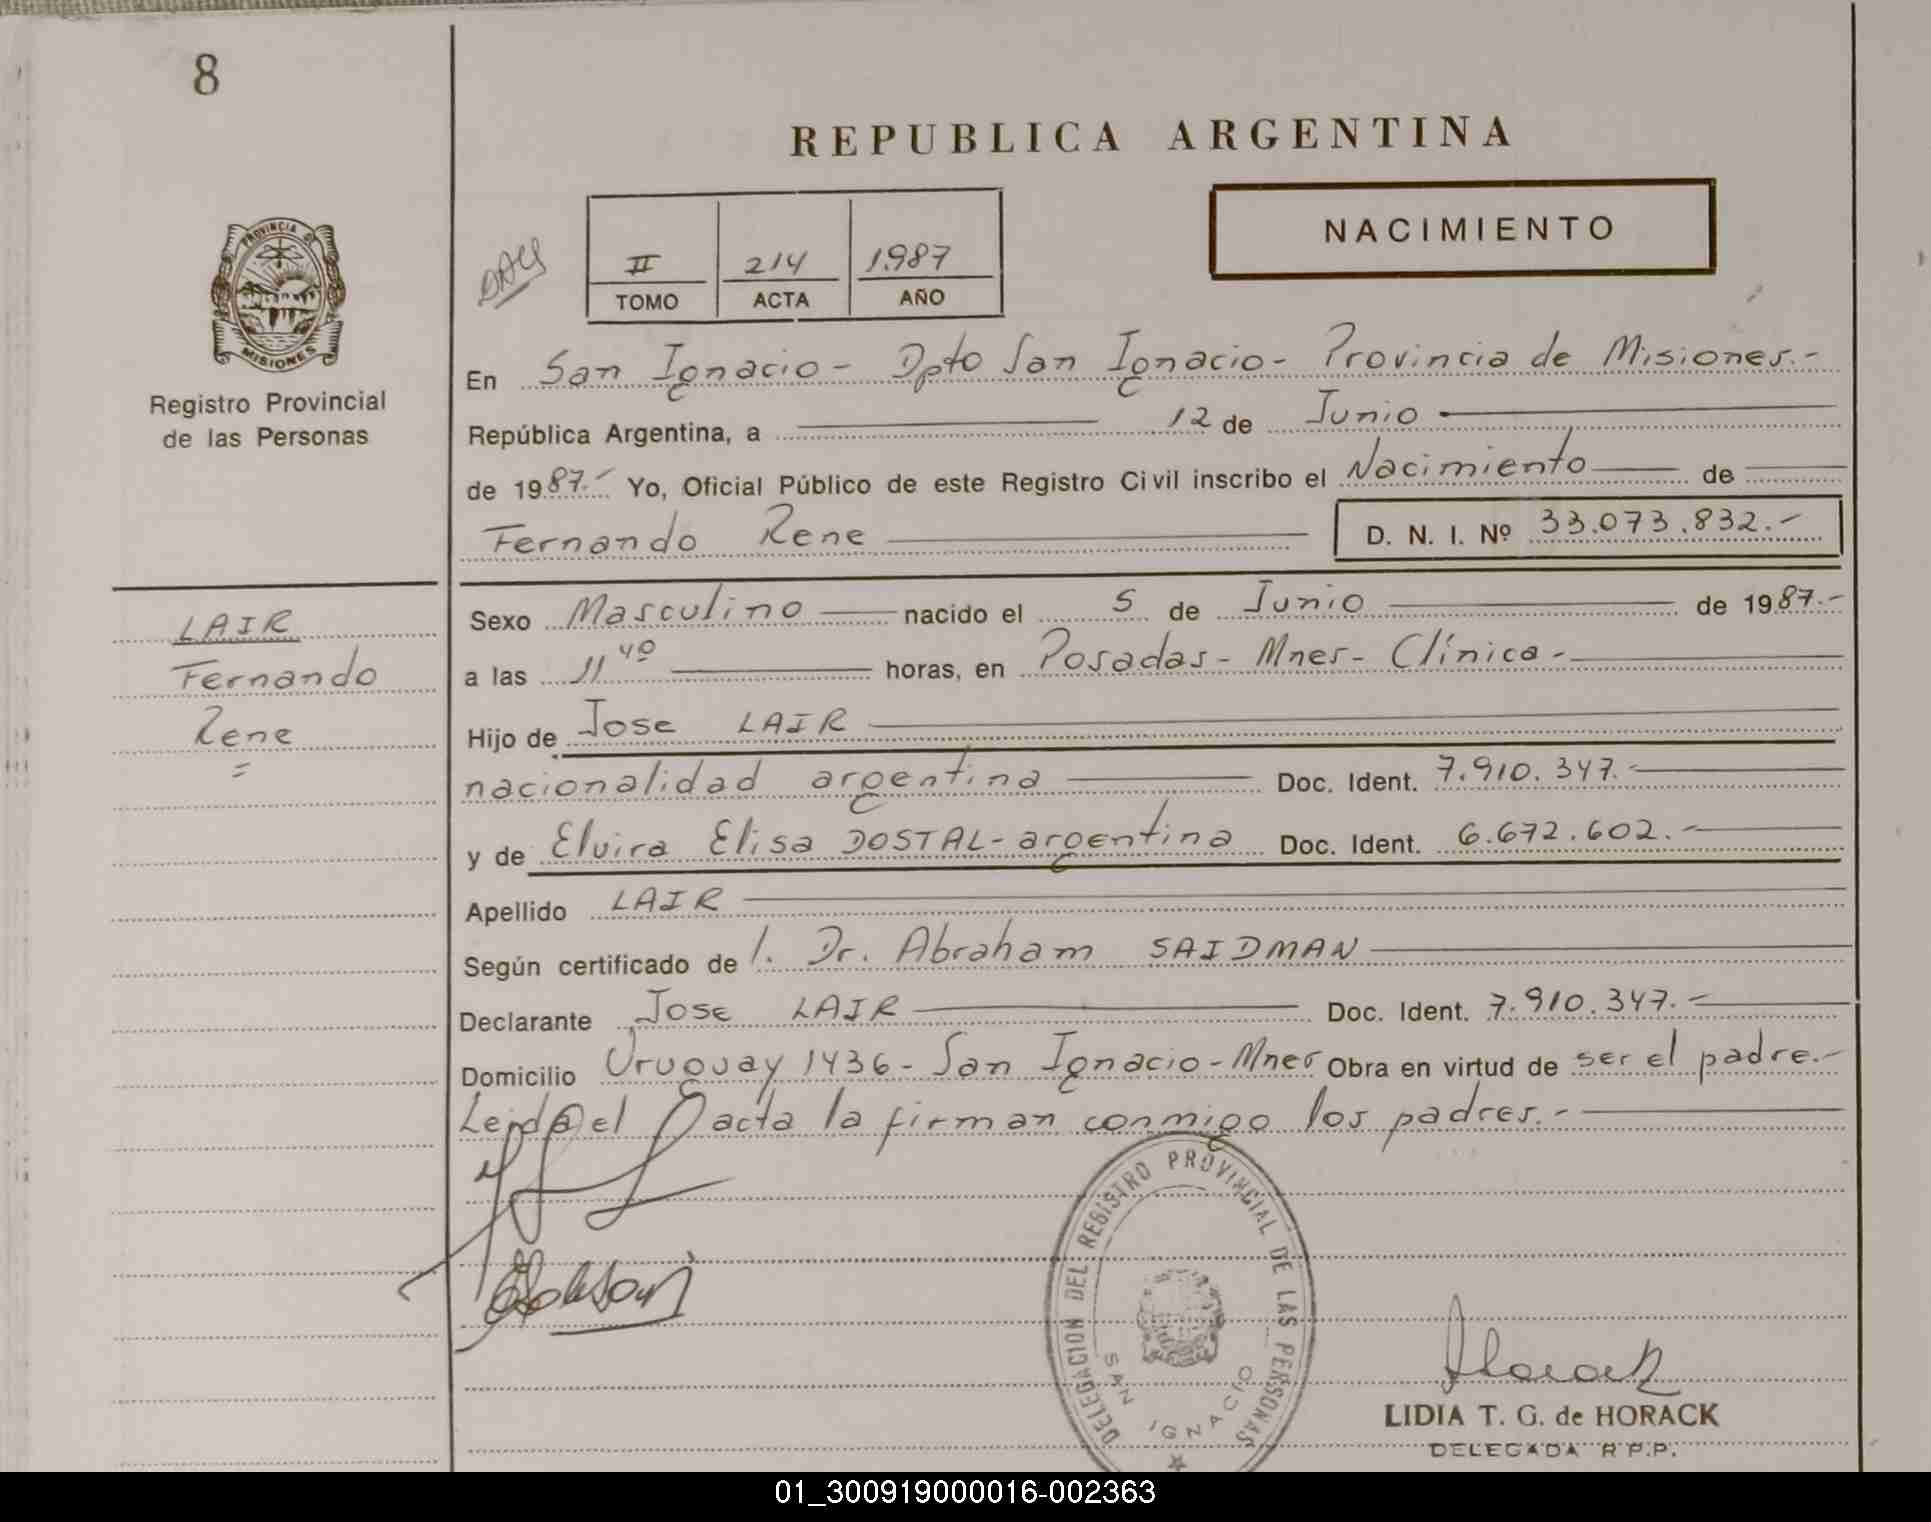 8
REPUBLICA ARGENTINA
NACIMIENTO
II 214 1.987
TOMO ACTA AÑO
PROVINCIA DE
MISIONES
Registro Provincial
de las Personas
En San Ignacio - Dpto San Ignacio - Provincia de Misiones.-
República Argentina, a 12 de Junio
de 1987.- Yo, Oficial Público de este Registro Civil inscribo el Nacimiento de
Fernando Rene D. N. I. Nº 33.073.832.-
LAIR
Fernando
Rene
Sexo Masculino nacido el 5 de Junio de 1987.-
a las 11 40 horas, en Posadas - Mnes - Clínica -
Hijo de Jose LAIR
nacionalidad argentina Doc. Ident. 7.910.347.-
y de Elvira Elisa DOSTAL - argentina Doc. Ident. 6.672.602.-
Apellido LAIR
Según certificado de /. Dr. Abraham SAIDMAN
Declarante Jose LAIR Doc. Ident. 7.910.347.-
Domicilio Uruguay 1436 - San Ignacio - Mnes Obra en virtud de ser el padre.-
Leida el acta la firman conmigo los padres.-
DELEGACION DEL REGISTRO PROVINCIAL DE LAS PERSONAS
SAN IGNACIO
Horack
LIDIA T. G. de HORACK
DELEGADA R.P.P.
01_300919000016-002363